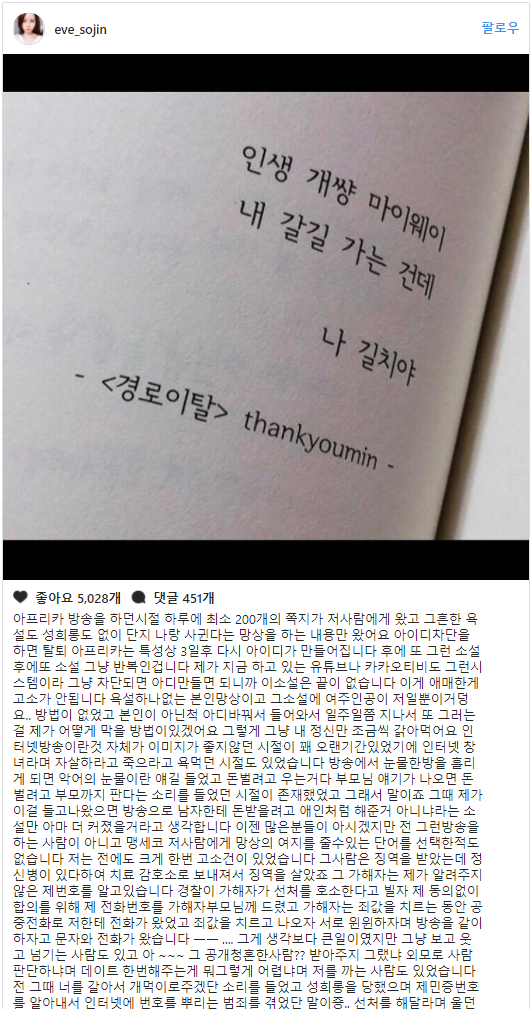 eve_sojin
팔로우
인생 개쌍 마이웨이
내 갈길 가는 건데
나 길치야
- <경로이탈> thankyoumin -
좋아요 5,028개 댓글 451개
아프리카 방송을 하던시절 하루에 최소 200개의 쪽지가 저사람에게 왔고 그흔한 욕
설도 성희롱도 없이 단지 나랑 사귄다는 망상을 하는 내용만 왔어요 아이디차단을
하면 탈퇴 아프리카는 특성상 3일후 다시 아이디가 만들어집니다 후에 또 그런 소설
후에또 소설 그냥 반복인겁니다 제가 지금 하고 있는 유튜브나 카카오티비도 그런시
스템이라 그냥 차단되면 아디만들면 되니까 이소설은 끝이 없습니다 이게 애매한게
고소가 안됩니다 욕설하나없는 본인망상이고 그소설에 여주인공이 저일뿐이거덩
요.. 방법이 없었고 본인이 아닌척 아디바꿔서 들어와서 일주일쯤 지나서 또 그러는
걸 제가 어떻게 막을 방법이있겠어요 그렇게 그냥 내 정신만 조금씩 갉아먹어요 인
터넷방송이란것 자체가 이미지가 좋지않던 시절이 꽤 오랜기간있었기에 인터넷 창
녀라며 자살하라고 죽으라고 욕먹던 시절도 있었습니다 방송에서 눈물한방을 흘리
게 되면 악어의 눈물이란 얘길 들었고 돈벌려고 우는거다 부모님 얘기가 나오면 돈
벌려고 부모까지 판다는 소리를 들었던 시절이 존재했었고 그래서 말이죠 그때 제가
이걸 들고나왔으면 방송으로 남자한테 돈받을려고 애인처럼 해준거 아니냐라는 소
설만 아마 더 커졌을거라고 생각합니다 이젠 많은분들이 아시겠지만 전 그런방송을
하는 사람이 아니고 맹세코 저사람에게 망상의 여지를 줄수있는 단어를 선택한적도
없습니다 저는 전에도 크게 한번 고소건이 있었습니다 그사람은 징역을 받았는데 정
신병이 있다하여 치료 감호소로 보내져서 징역을 살았죠 그 가해자는 제가 알려주지
않은 제번호를 알고있습니다 경찰이 가해자가 선처를 호소한다고 빌자 제 동의없이
합의를 위해 제 전화번호를 가해자부모님께 드렸고 가해자는 죄값을 치르는 동안 공
중전화로 저한테 전화가 왔었고 죄값을 치르고 나오자 서로 윈윈하자며 방송을 같이
하자고 문자와 전화가 왔습니다 ㅡㅡ .... 그게 생각보다 큰일이였지만 그냥 보고 웃
고 넘기는 사람도 있고 아 ~~~ 그 공개청혼한사람?? 받아주지 그랬냐 외모로 사람
판단하냐며 데이트 한번해주는게 뭐그렇게 어렵냐며 저를 까는 사람도 있었습니다
전 그때 너를 갈아서 개먹이로주겠단 소리를 들었고 성희롱을 당했으며 제민증번호
를 알아내서 인터넷에 번호를 뿌리는 범죄를 겪었단 말이죵.. 선처를 해달라며 울던